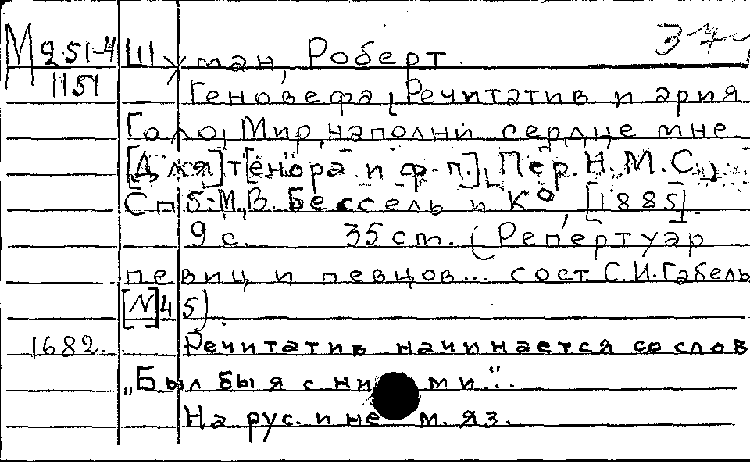 М 251-4 Шуман, Роберт
1151
Геновефа, Речитатив и ария
Голо, Мир, наполни сердце мне
[Для] т[енора и ф-п.], Пер. Н.М.С.,
Спб. М.В. Бессель и К°, [1885].
9 с. 35 cm. (Репертуар
певиц и певцов... сост С.И.Габель
[N45).
1682. Речитатив начинается со слов
„Был бы я с ними".
На рус. и нем. яз.